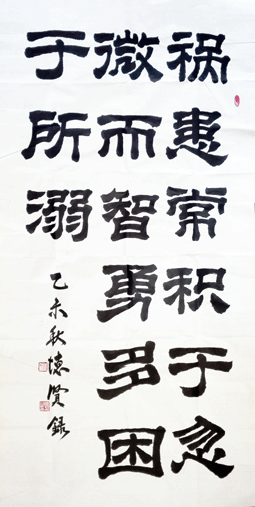 祸患常积于忽
微而智勇多困
于所溺
乙未秋德贤録